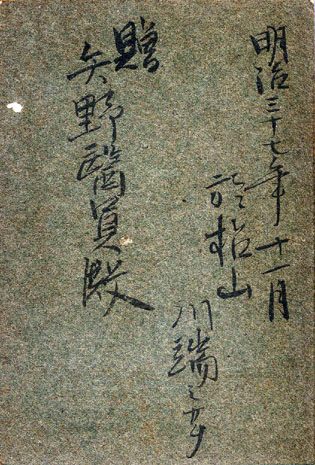 明治三十七年十一月
於松山
川端
贈
矢野醫員殿